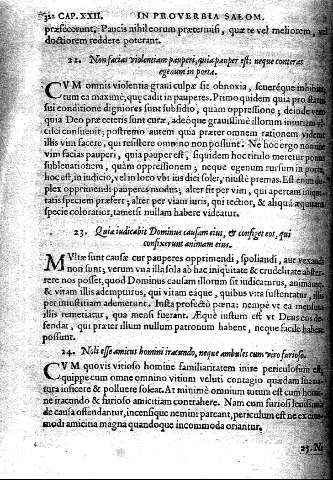 312 CAP. XXII. IN PROVERBIA SALOM.
præfecerunt, Paucis nihil eorum prætermisi, quæ te vel meliorem, vel
doctiorem reddere poterant.
22. Non facias violentiam pauperi, quia pauper est: neque conteras
egenum in porta.
CVM omnis violentia gravi culpæ sit obnoxia,
tum ea maximè, quæ cadit in pauperes. Primo quidem quia pro
sui conditione digniores sunt subsidio, quàm oppressione; deinde
quia Deo præ ceteris sunt curæ, adeoque gravissimè illorum
postremo autem quia præter omnem rationem videtur
illis vim facere, qui resistere omnino non possunt. Ne hoc ergo nomine
vim facias pauperi, quia pauper est, siquidem hoc titulo meretur potius
sublevationem, quàm oppressionem; neque egenum rursum in porta,
hoc est, in iudicio, vel in loco ubi ius dici solet, iniustè premas. Est enim
plex opprimendi pauperes modus; alter fit per vim, qui apertam
speciem præfert; alter per viam iuris, qui tectior, & aliquâ æquitatis
specie coloratior, tametsi nullam habere videatur.
23. Quia iudicabit Dominus causam eius, & configet eos, qui
confixerunt animam eius.
MVltæ sunt causæ cur pauperes opprimendi, spoliandi, aut vexandi
non sunt; verùm vna illa sola ab hac iniquitate & crudelitate
rere nos posset, quod Dominus causam illorum sit iudicaturus,
& vitam illis adempturus, qui vitam eâque, quibus vita sustentatur, illis
per iniustitiam ademerunt. Iusta profectò pœna: nempe vt ea mensura
illis remetiatur, qua mensi fuerant. Æquè iustum est vt Deus eos de-
fendat, qui præter illum nullum patronum habent, neque facile habere
possunt.
24. Noli esse amicus homini iracundo, neque ambules cum viro furioso.
CVM quovis vitioso homine familiaritatem inire periculosum est,
quippe cum omne omnino vitium veluti contagio quædam sua
tura inficere & polluere soleat. At minimè omnium tutum est cum homi-
ne iracundo & furioso amicitiam contrahere. Nam cum furiosi
de causa offendantur, incensique nemini parcant, periculum est ne ex
modi amicitia magna quandoque incommoda oriantur.